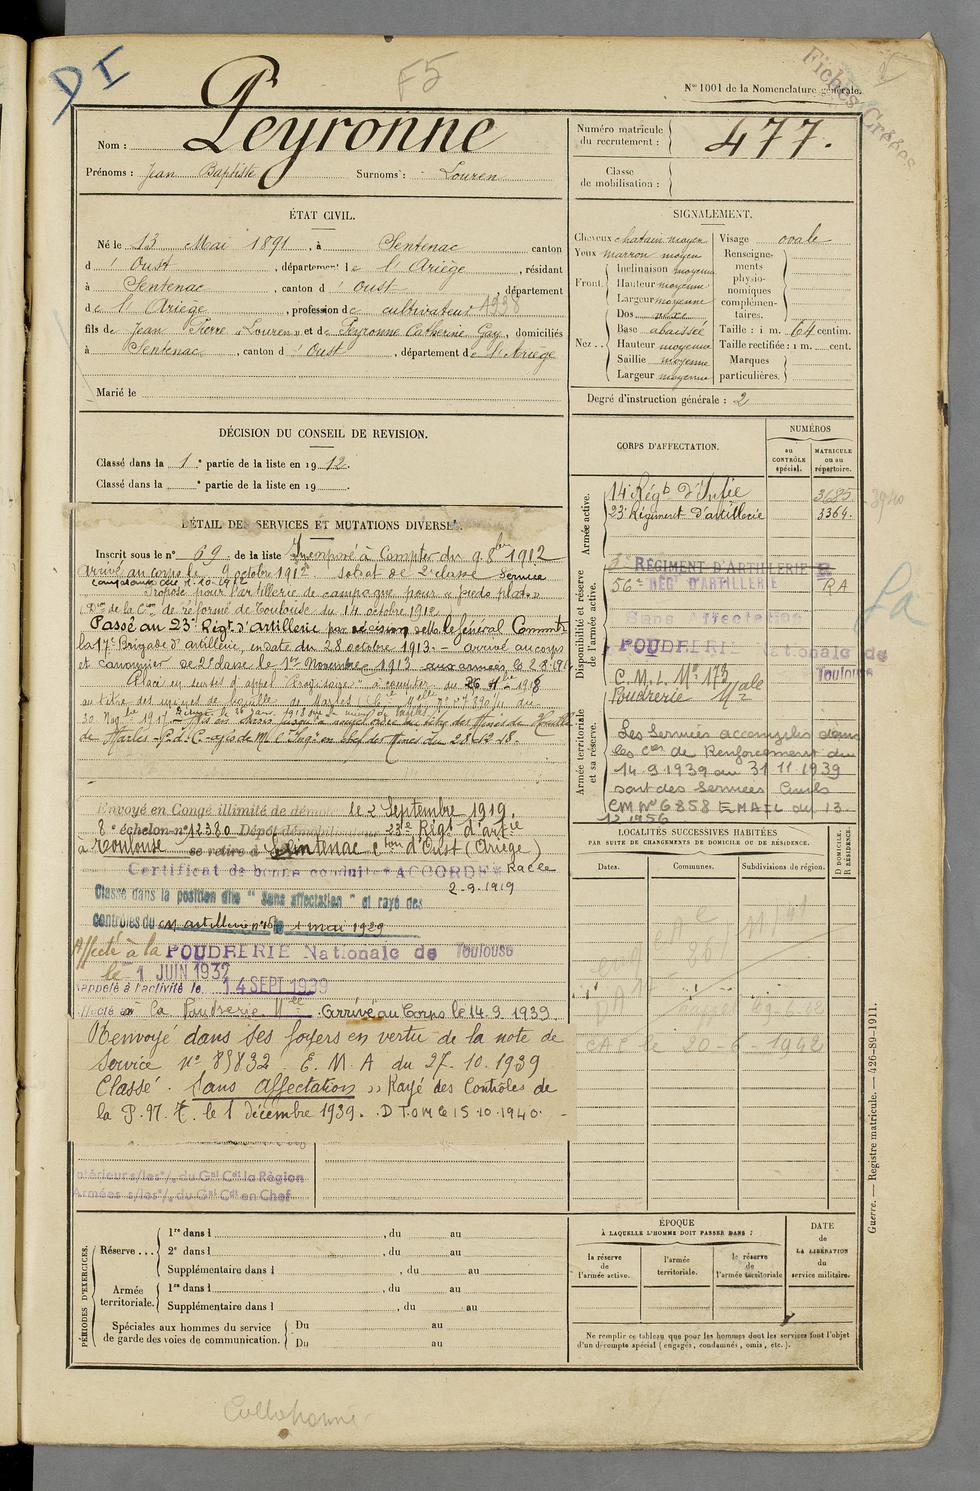 DI
F5
Fiches Créées
Nº 1001 de la Nomenclature générale.
Nom : Peyronne
Prénoms : Jean Baptiste Surnoms : Louren
Numéro matricule
du recrutement : 477.
Classe
de mobilisation :
ÉTAT CIVIL.
Né le 13 Mai 1891, à Sentenac canton
d' Oust, département de l'Ariège, résidant
à Sentenac, canton d' Oust, département
de l'Ariège, profession de cultivateur 1938
fils de Jean Pierre "Louren" et de Peyronne Catherine Gay, domiciliés
à Sentenac, canton d' Oust, département de l'Ariège
Marié le
SIGNALEMENT.
Cheveux chatain moyen
Yeux marron moyen
Front. Inclinaison moyenne
Hauteur moyenne
Largeur moyenne
Nez.. Dos vexe
Base abaissé
Hauteur moyenne
Saillie moyenne
Largeur moyenne
Visage ovale
Renseigne-
ments
physio-
nomiques
complémen-
taires.
Taille : 1 m. 64 centim.
Taille rectifiée : 1 m. cent.
Marques
particulières.
Degré d'instruction générale : 2
DÉCISION DU CONSEIL DE REVISION.
Classé dans la 1e partie de la liste en 1912.
Classé dans la e partie de la liste en 19
DÉTAIL DES SERVICES ET MUTATIONS DIVERSES.
Inscrit sous le nº 69 de la liste Incorporé à Compter du 9 8bre 1912
Arrivé au corps le 9 octobre 1912 soldat de 2e classe Service
Proposé pour l'artillerie de campagne pour « pieds plats »
(Don de la Con de réforme de Toulouse du 14 octobre 1912
Passé au 23e Régt. d'artillerie par décision de le Général Commdt
la 17e Brigade d'artillerie, en date du 28 octobre 1913. – arrivé au corps
et canonnier de 2e classe le 1er Novembre 1913 aux armées le 2.8.191
à compter du 26
au titre des mines de houille de Marles
30 Mines de Houille
de Marles P. de C. du 28.12.18.
Envoyé en Congé illimité de démob le 2 Septembre 1919,
8e échelon nº 12380 Dépôt démobilisateur 23e Régt d'artie
à Toulouse se retire à Sentenac Cton d'Oust (Ariège)
Certificat de bonne conduite "ACCORDÉ" Racle
2-9-1919
Classé dans la position dite "Sans affectation" et rayé des
contrôles du artillerie le 1 mai 1929
Affecté à la POUDRERIE Nationale de Toulouse
le 1 JUIN 1932
Rappelé à l'activité le 14 SEPT 1939
Affecté à la Poudrerie Nle Arrivé au Corps le 14.9.1939
Renvoyé dans ses foyers en vertu de la note de
Service nº 83832 E.M.A du 27.10.1939
Classé. Sans affectation " Rayé des Contrôles de
la P.N.T. le 1 décembre 1939. D T.O.M le 15.10.1940. -
ntérieur s/les º/ du Gal Cdt la Région
Armées s/les º/ du Gal Cdt en Chef
CORPS D'AFFECTATION.
NUMÉROS
au
CONTRÔLE
spécial.
MATRICULE
ou au
répertoire.
Armée active.
14e Régt d'Infie 3685
3940
23e Régiment d'artillerie 3364.
Disponibilité et réserve
de l'armée active.
RÉGIMENT D'ARTILLERIE
56e REGt D'ARTILLERIE RA
Sans Affectation
POUDRERIE Nationale de
Toulouse
C.M.L. Nº 173
Poudrerie Nale
La
Armée territoriale
et sa réserve.
Les Services accomplis dans
les Cies de Renforcement du
14.9.1939 au 31 11 1939
sont des Services Civils
CM Nº 6858 EMAIL du 13.
12.1956
LOCALITÉS SUCCESSIVES HABITÉES
PAR SUITE DE CHANGEMENTS DE DOMICILE OU DE RÉSIDENCE.
Dates. Communes. Subdivisions de région.
D DOMICILE.
R RÉSIDENCE.
CAC le 20-6-1942
Guerre. — Registre matricule. — 426-89-1911.
PÉRIODES D'EXERCICES.
Réserve... 1re dans l , du au
2e dans l , du au
Supplémentaire dans l , du au
Armée
territoriale. 1re dans l , du au
Supplémentaire dans l , du au
Spéciales aux hommes du service
de garde des voies de communication. Du au
Du au
ÉPOQUE
À LAQUELLE L'HOMME DOIT PASSER DANS :
la réserve
de
l'armée active.
l'armée
territoriale.
la réserve
de
l'armée territoriale
DATE
de
LA LIBÉRATION
du
service militaire.
Ne remplir ce tableau que pour les hommes dont les services font l'objet
d'un décompte spécial (engagés, condamnés, omis, etc.).